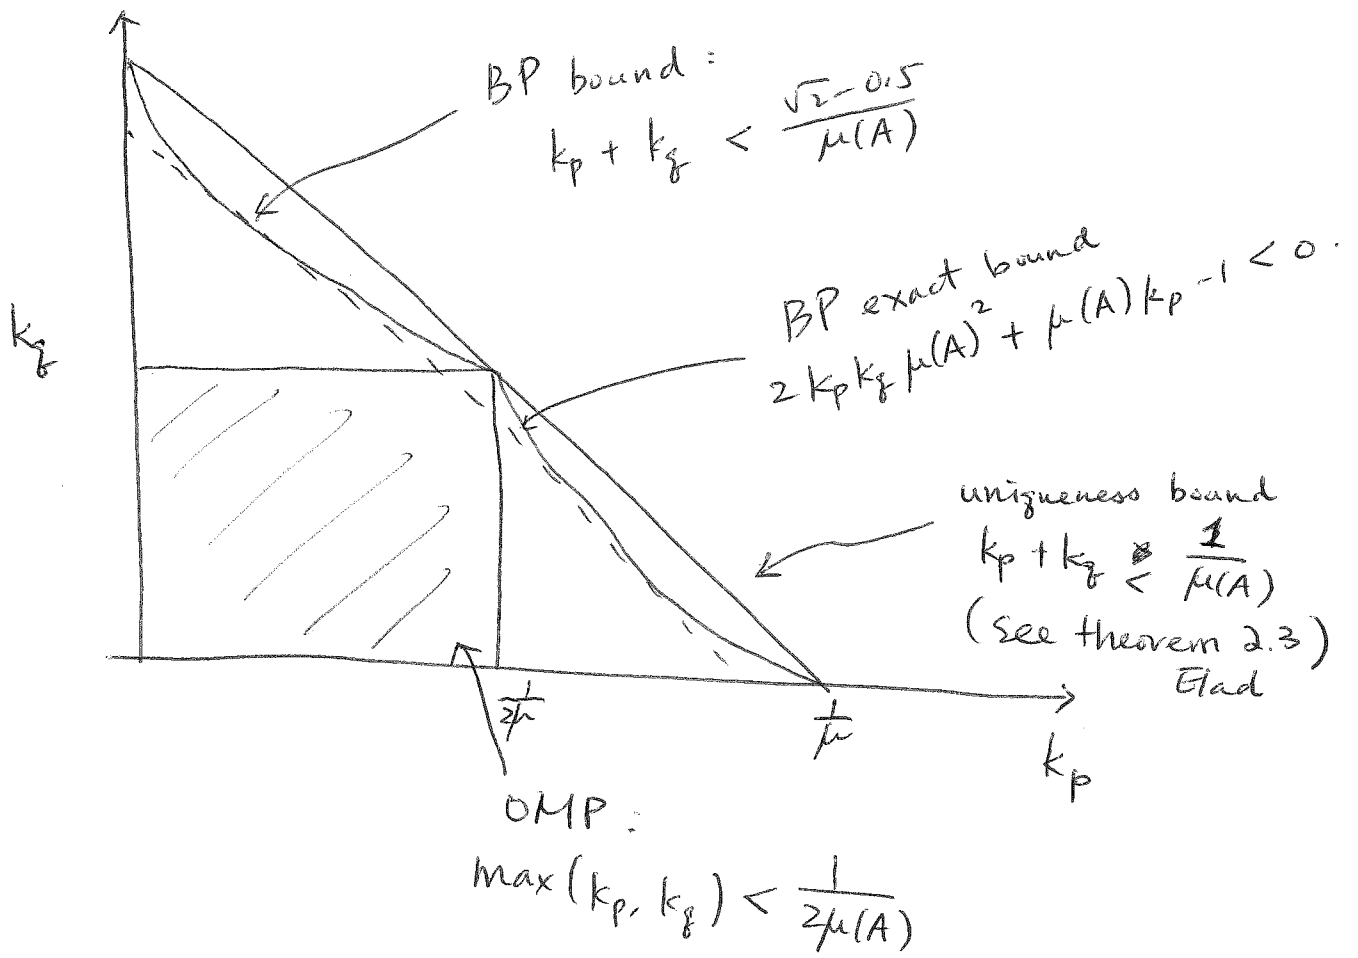 BP bound :
kp + kq < √2-0.5 / μ(A)
BP exact bound
2 kp kq μ(A)² + μ(A) kp -1 < 0.
kq
uniqueness bound
kp + kq < 1 / μ(A)
(see theorem 2.3)
Elad
1/2μ
1/μ
kp
OMP :
max(kp, kq) < 1 / 2μ(A)